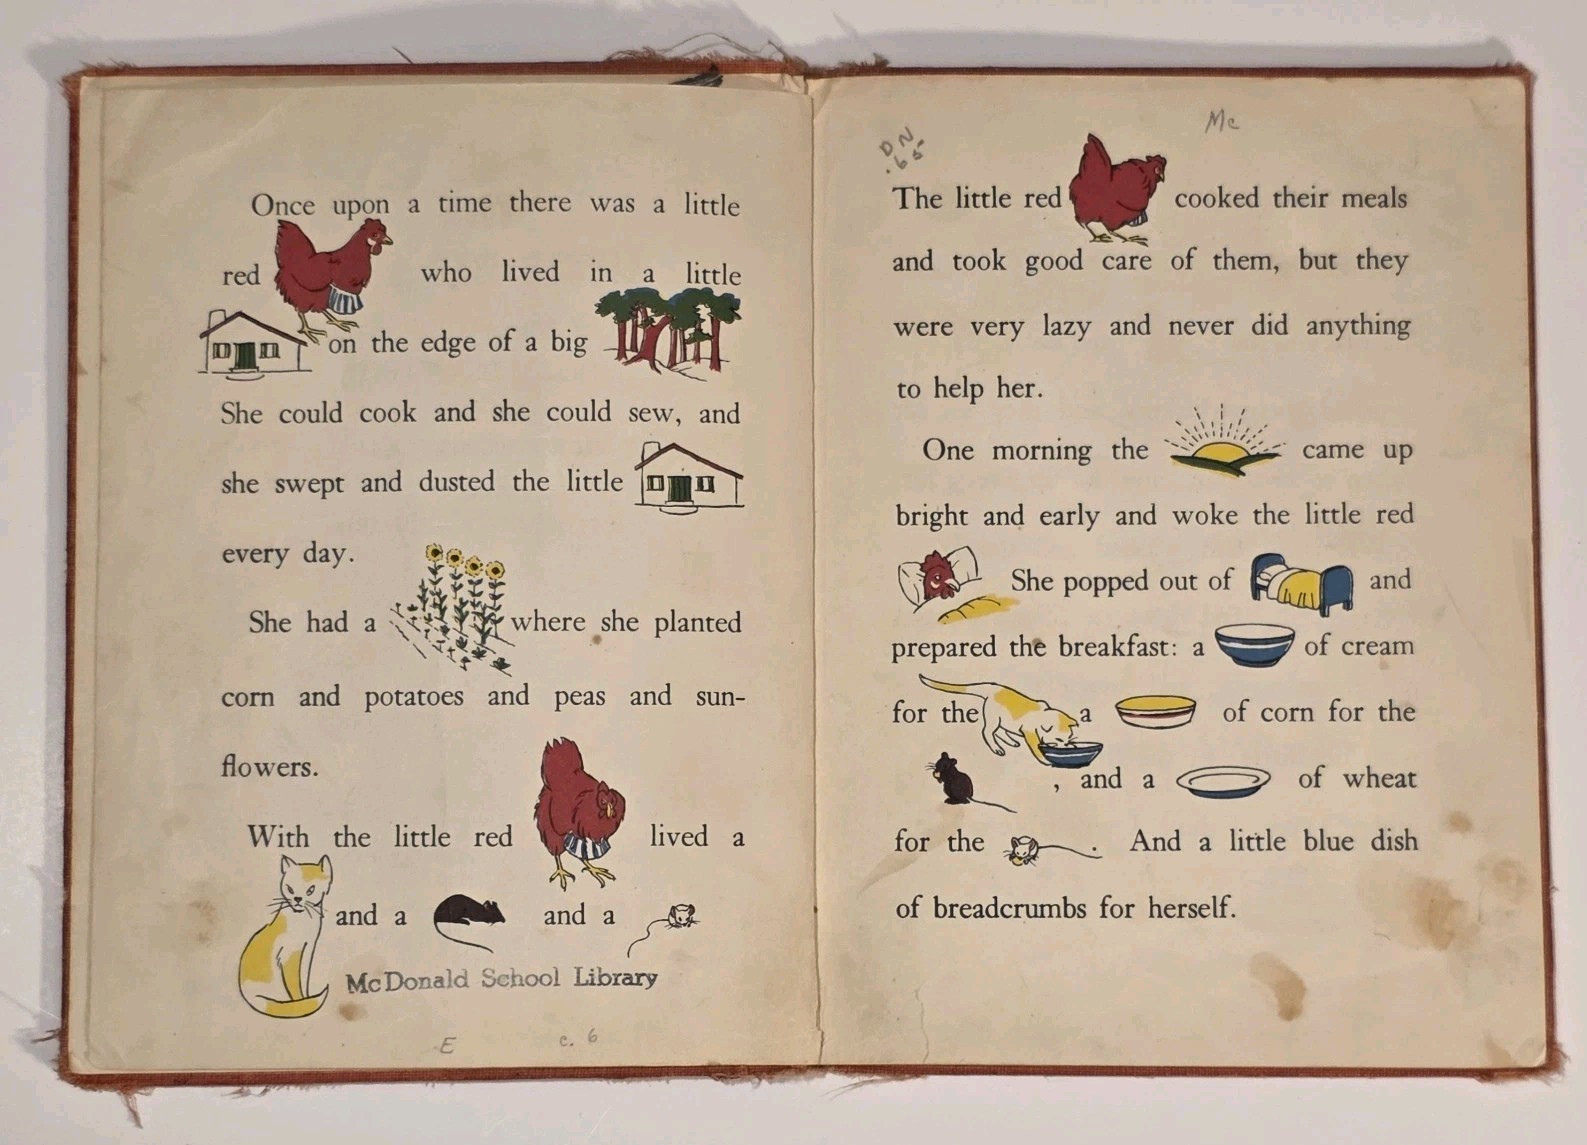 Once upon a time there was a little
red who lived in a little
on the edge of a big
She could cook and she could sew, and
she swept and dusted the little
every day.
She had a where she planted
corn and potatoes and peas and sun-
flowers.
With the little red lived a
and a and a
McDonald School Library
E c. 6
Mc
D N
.65
The little red cooked their meals
and took good care of them, but they
were very lazy and never did anything
to help her.
One morning the came up
bright and early and woke the little red
She popped out of and
prepared the breakfast: a of cream
for the a of corn for the
, and a of wheat
for the . And a little blue dish
of breadcrumbs for herself.